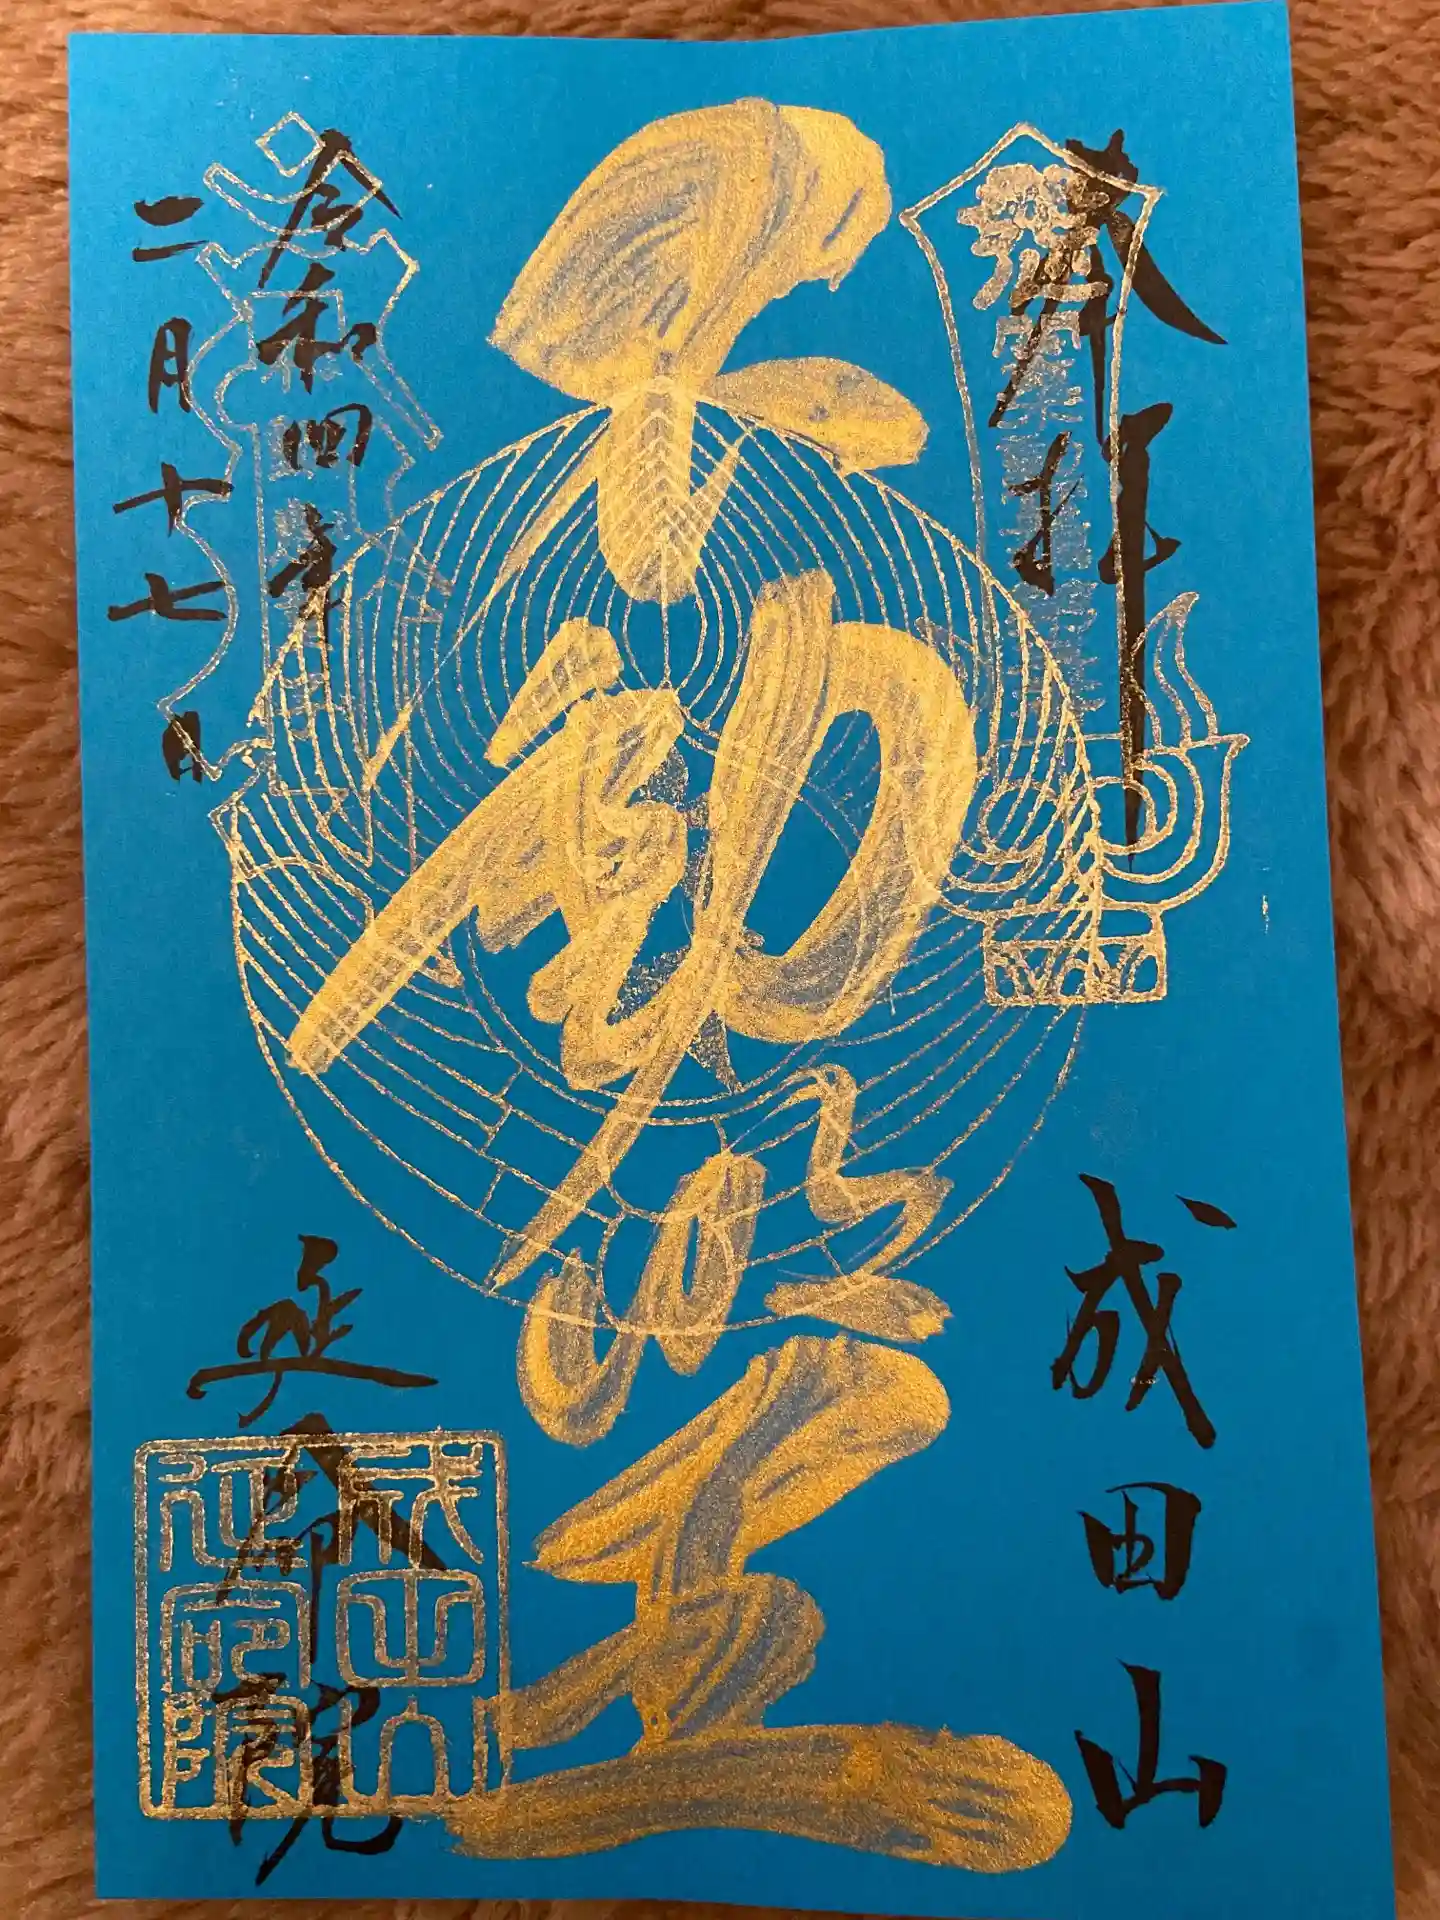 奉拝
成田山
不動明王
令和四年
二月十七日
延命院
成田山
延命院